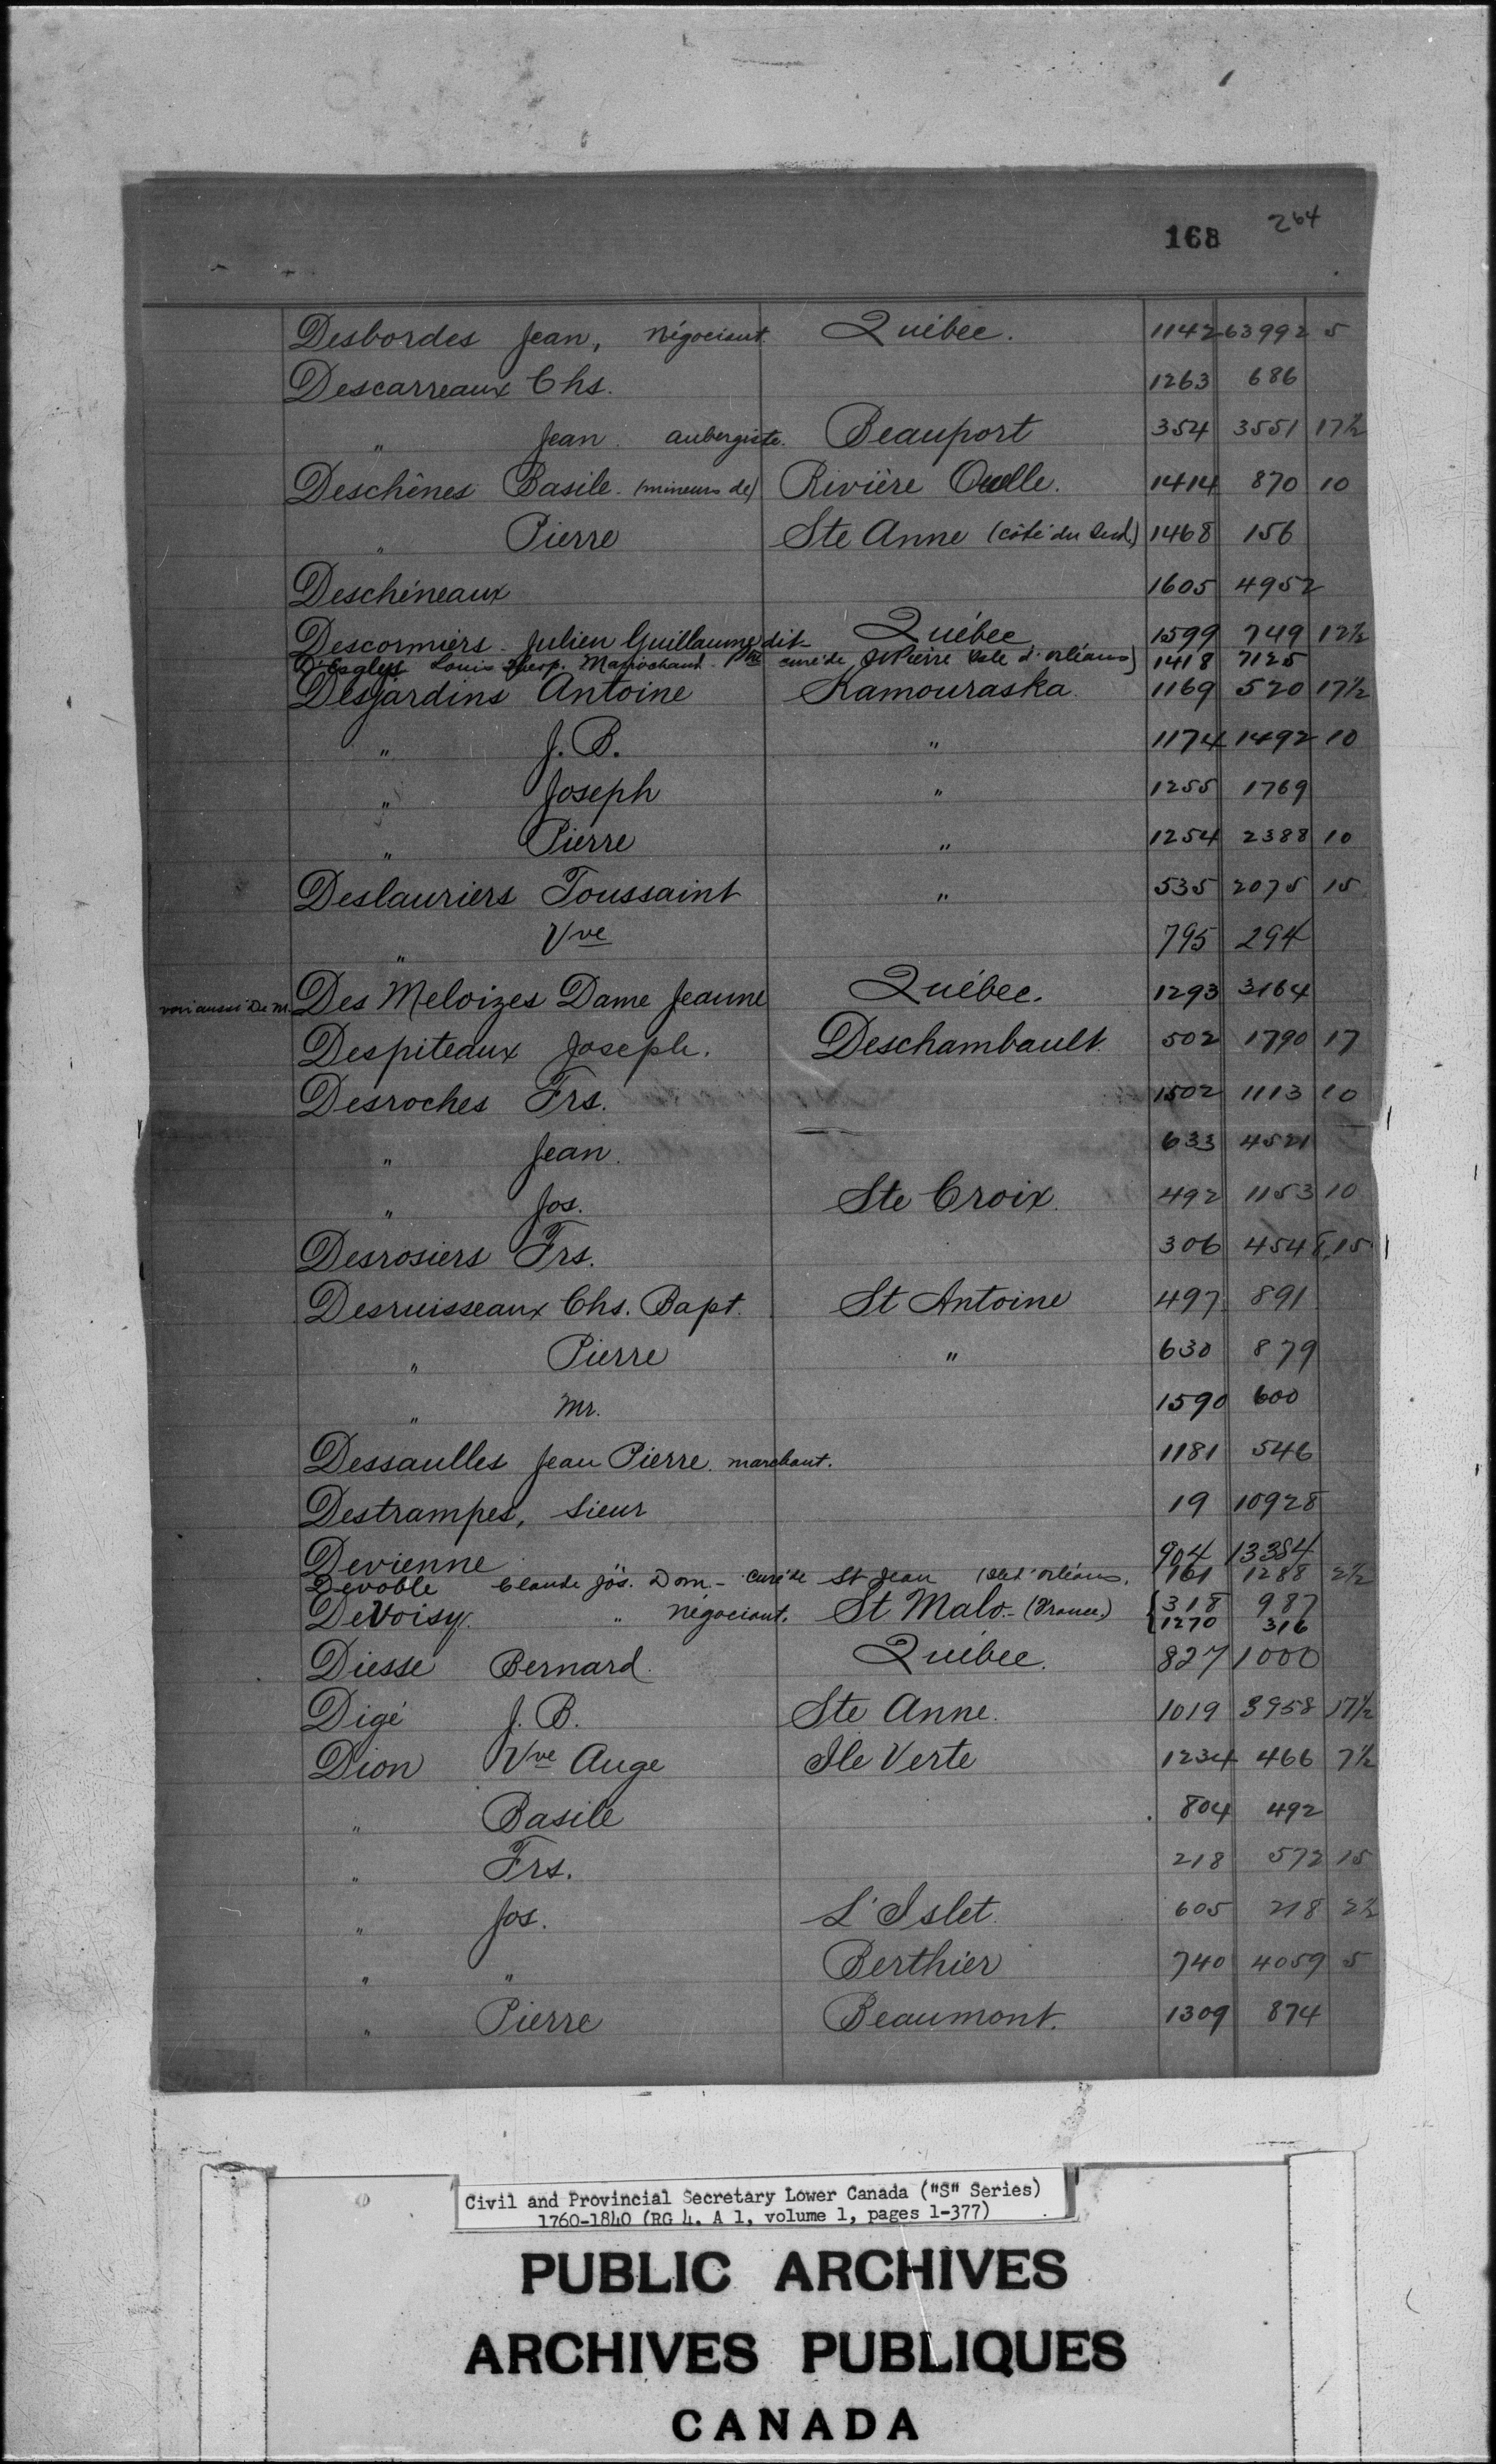 168 264
Desbordes Jean, négociant. Québec. 1142 63992 5
Descarreaux Chs. 1263 686
" Jean. aubergiste. Beauport 354 3551 17½
Deschênes Basile. (mineurs de) Rivière Ouelle. 1414 870 10
" Pierre Ste Anne (côté du Sud.) 1468 156
Deschéneaux 1605 4952
Descormiers. Julien Guillaume dit Québec 1599 749 12½
D'Esglys Louis curé de St Pierre Isle d'Orléans) 1418 7125
Desjardins Antoine Kamouraska. 1169 520 17½
" J. B. " 1174 1492 10
" Joseph " 1255 1769
" Pierre " 1254 2388 10
Deslauriers Toussaint " 535 2075 15
" Vve 795 294
voir aussi De M. Des Meloizes Dame Jeanne Québec. 1293 3164
Despiteaux Joseph. Deschambault. 502 1790 17
Desroches Frs. 1502 1113 10
" Jean. 633 4521
" Jos. Ste Croix. 492 1153 10
Desrosiers Frs. 306 4548 15
Desruisseaux Chs. Bapt. St Antoine 497 891
" Pierre " 630 879
" Mr. 1590 600
Dessaulles Jean Pierre. marchant. 1181 546
Destrampes, Sieur 19 10928
Devienne 904 13384
Devoble Claude Jos. Dom. - curé de St Jean Isle d'Orléans. 161 1288 2½
DeVoisy. " négociant. St Malo. - (France.) { 318 987
1270 316
Diesse Bernard. Québec. 827 1000
Digé J. B. Ste Anne. 1019 3958 17½
Dion Vve Auge Ile Verte 1234 466 7½
" Basile 804 492
" Frs. 218 572 15
" Jos. L'Islet. 605 218 2½
" " Berthier 740 4059 5
" Pierre Beaumont. 1309 874
Civil and Provincial Secretary Lower Canada ("S" Series)
1760-1840 (RG 4, A 1, volume 1, pages 1-377)
PUBLIC ARCHIVES
ARCHIVES PUBLIQUES
CANADA